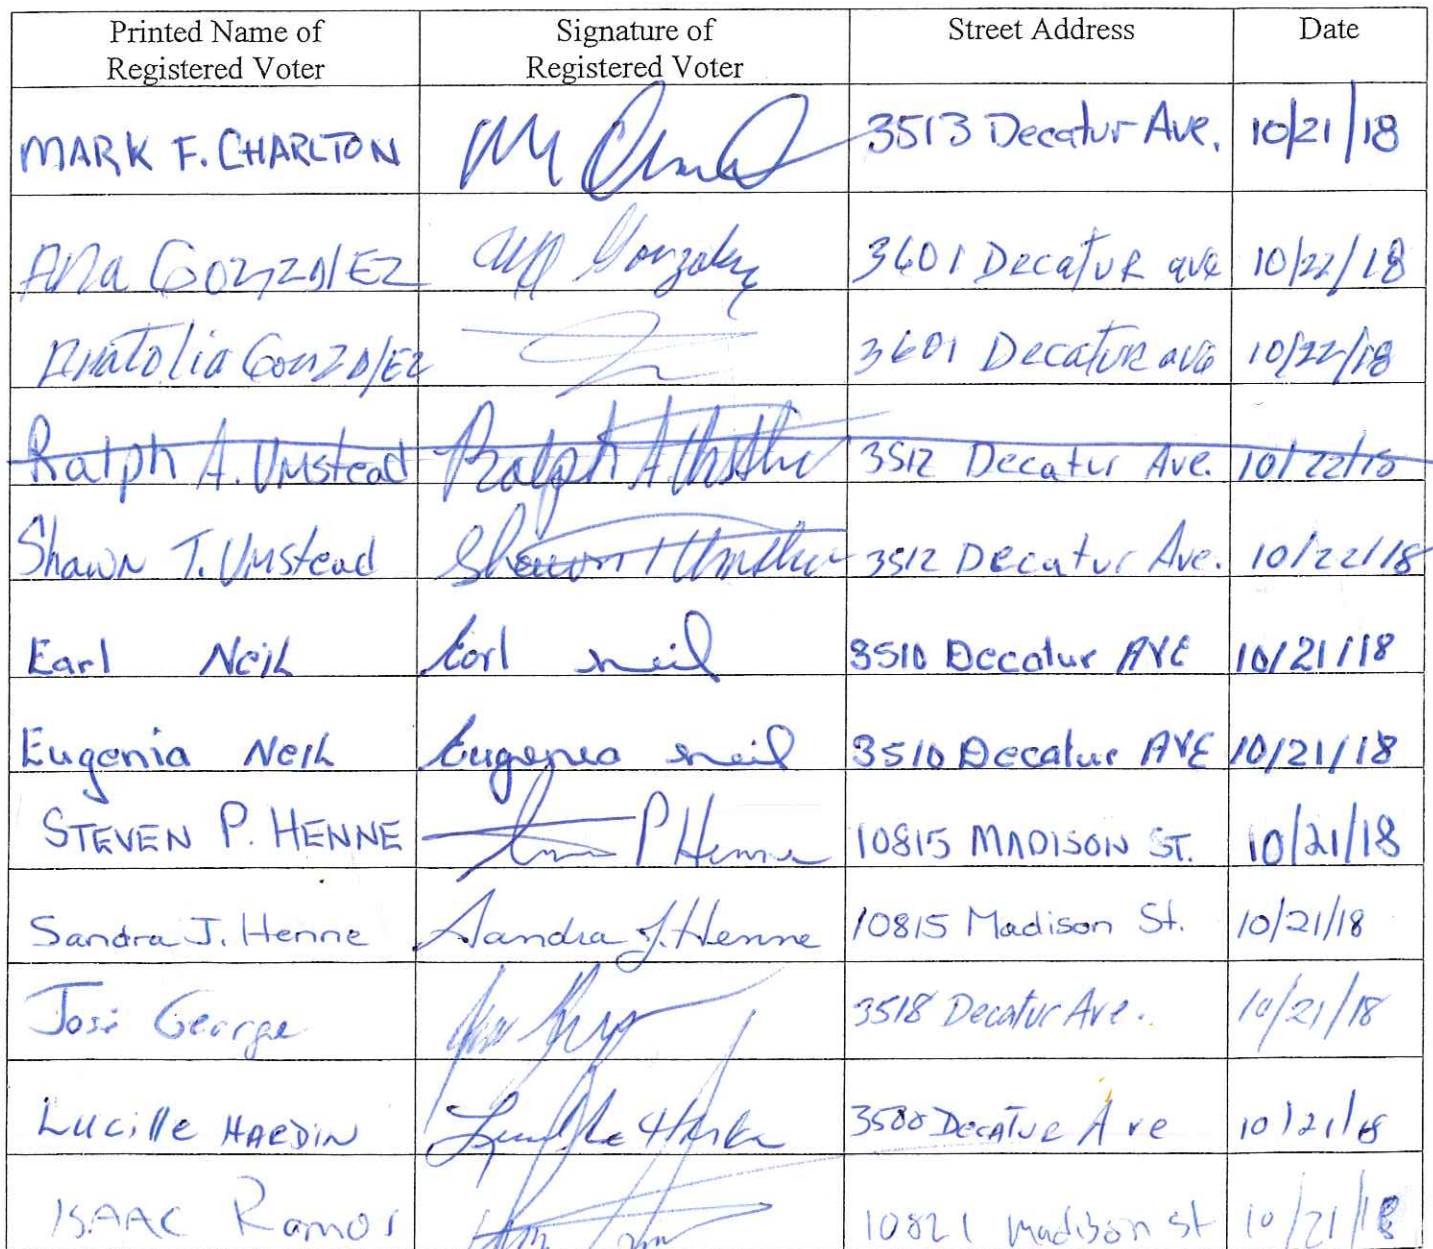 Printed Name of Registered Voter Signature of Registered Voter Street Address Date
MARK F. CHARLTON 3513 Decatur Ave. 10/21/18
Ana GonzalEz Gonzalez 3601 DecatuR ave 10/22/18
Anatolia GonzalEz 3601 DecatuR ave 10/22/18
Ralph A. Umstead Ralph A Umstead 3512 Decatur Ave. 10/22/18
Shawn T. Umstead Shawn T Umstead 3512 Decatur Ave. 10/22/18
Earl Neil Earl neil 3510 Decatur AVE 10/21/18
Eugenia Neil Eugenia neil 3510 Decatur AVE 10/21/18
STEVEN P. HENNE P Henne 10815 MADISON ST. 10/21/18
Sandra J. Henne Sandra J. Henne 10815 Madison St. 10/21/18
José George 3518 Decatur Ave. 10/21/18
Lucille HARDIN Lucille Hardin Decatur Ave 10/21/18
ISAAC Ramos 10821 Madison St 10/21/18